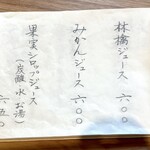 林檎ジュース 六〇〇
みかんジュース 六〇〇
果実シロップジュース
(炭酸 水 お湯) 六五〇